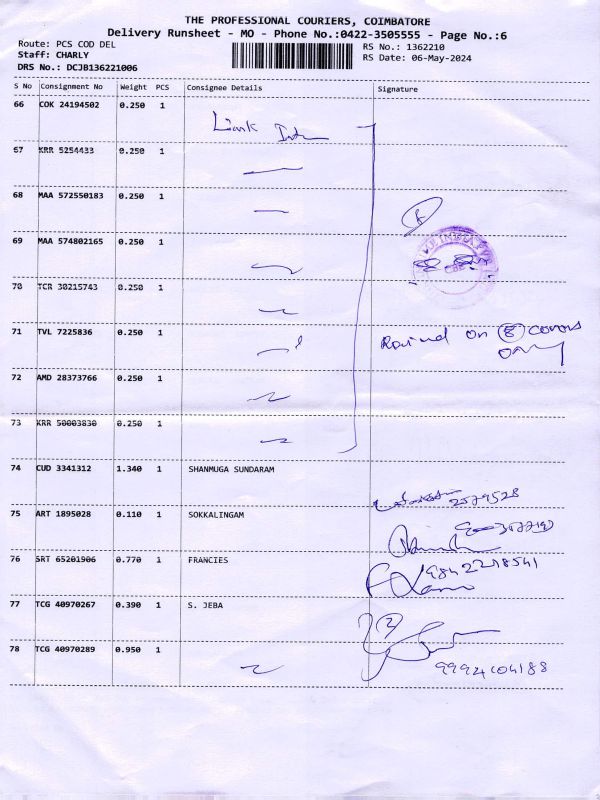 THE PROFESSIONAL COURIERS, COIMBATORE
Delivery Runsheet - MO - Phone No.:0422-3505555 - Page No.:6
Route: PCS COD DEL
Staff: CHARLY
DRS No.: DCJB136221006
RS No.: 1362210
RS Date: 06-May-2024
S No Consignment No Weight PCS Consignee Details Signature
66 COK 24194502 0.250 1
67 KRR 5254433 0.250 1
68 MAA 572550183 0.250 1
69 MAA 574802165 0.250 1
70 TCR 30215743 0.250 1
71 TVL 7225836 0.250 1
on 8 covers
only
72 AMD 28373766 0.250 1
73 KRR 50003830 0.250 1
74 CUD 3341312 1.340 1 SHANMUGA SUNDARAM
2579528
75 ART 1895028 0.110 1 SOKKALINGAM
76 SRT 65201906 0.770 1 FRANCIES
77 TCG 40970267 0.390 1 S. JEBA
78 TCG 40970289 0.950 1